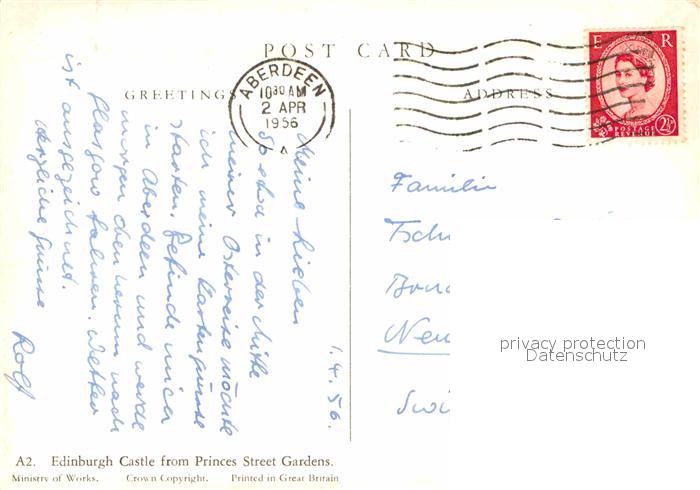 POST CARD
GREETINGS
ADDRESS
ABERDEEN
10 30 AM
2 APR
1956
E R
POSTAGE
REVENUE
2½
1.4.56.
Meine Lieben
So etwa in der Mitte
meiner Osterreise möchte
ich meine Kartengrüsse
starten. Befinde mich
in Aberdeen und werde
morgen den herum nach
Glasgow fahren. Wetter
ist ausgezeichnet.
Herzliche Grüsse
Rolf
Familie
Tsch
Neu
Swi
privacy protection
Datenschutz
A2. Edinburgh Castle from Princes Street Gardens.
Ministry of Works. Crown Copyright. Printed in Great Britain